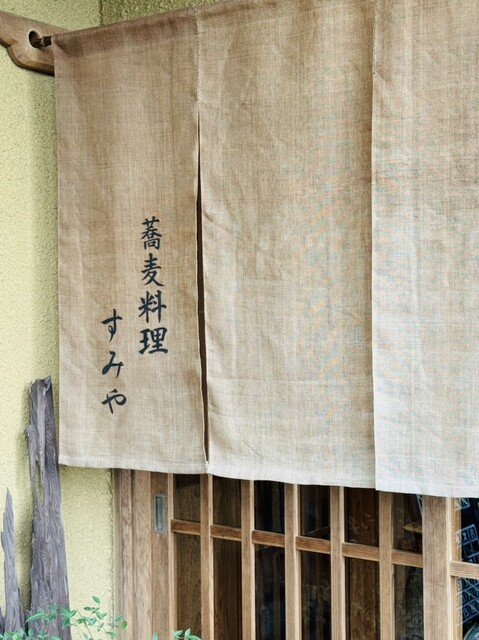 蕎麦料理
すみや